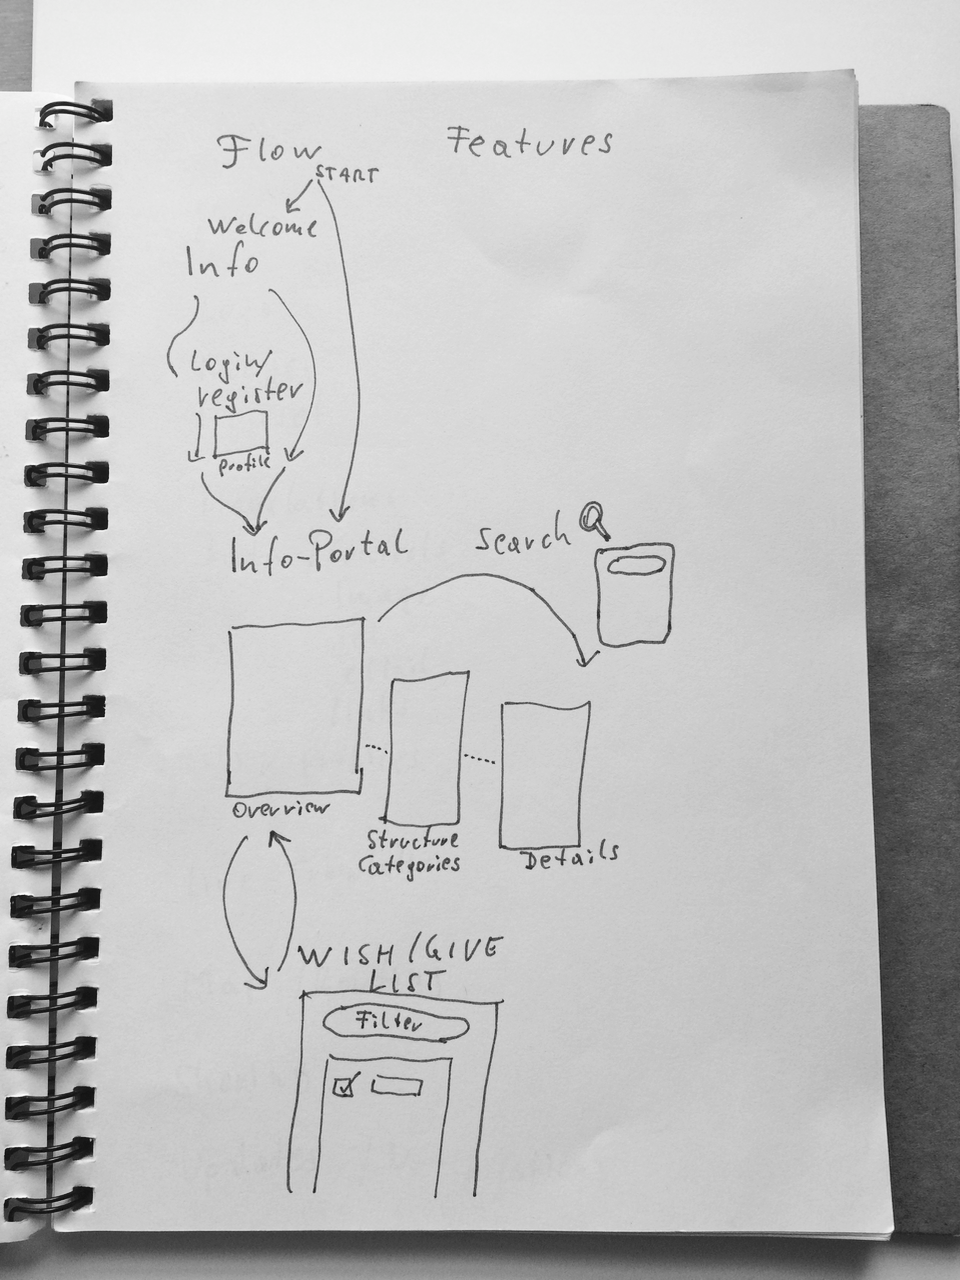 Flow
Features
START
Welcome
Info
Login/
register
Profile
Info-Portal
Search
Overview
Structure
Categories
Details
WISH/GIVE
LIST
Filter